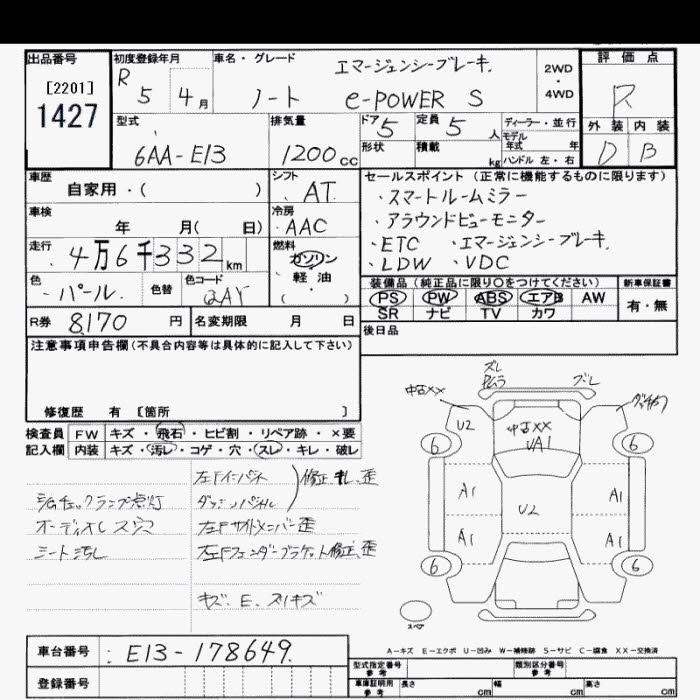 出品番号 初度登録年月 車名・グレード 評価点
[2201] R 5 4月 エマージェンシーブレーキ. 2WD・4WD R
1427 ノート e-POWER S
型式 排気量 ドア 5 定員 5 人 ディーラー・並行 外装 内装
6AA-E13 1200cc 形状 積載 kg モデル年式 年 D B
ハンドル 左・右
車歴 シフト セールスポイント(正常に機能するものに限ります)
自家用・( ) AT ・スマートルームミラー
車検 冷房 ・アラウンドビューモニター
年 月( 日) AAC ・ETC ・エマージェンシーブレーキ.
走行 燃料 ・LDW ・VDC
4万6千332km ガソリン・軽油・( )
色 色替 色コード 装備品(純正品に限り○をつけてください) 新車保証書
パール. QAY PS PW ABS エアB AW 有・無
SR ナビ TV カワ
R券 8,170 円 名変期限 月 日 後日品
注意事項申告欄(不具合内容等は具体的に記入して下さい)
修復歴 有 [箇所 ]
検査員 FW キズ・飛石・ヒビ割・リペア跡・×要
記入欄 内装 キズ・汚レ・コゲ・穴・スレ・キレ・破レ
左Fインパネ
ダッシュパネル 修正 歪
チェックランプ点灯
オーディオレス穴 左Fサイドメンバー歪
シート汚し 左Fフェンダーブラケット修正、歪
キズ、E、スリキズ
ズレ
ズレ
中古XX
U2 中古XX
UA1
6 6
A1 A1
U2
A1 A1
6 6
スペア
A-キズ E-エクボ U-凹み W-補修跡 S-サビ C-腐食 XX-交換済
車台番号 E13-178649
登録番号
型式指定番号 参考 類別区分番号 参考
車庫証明用 参考 長さ cm 幅 cm 高さ cm